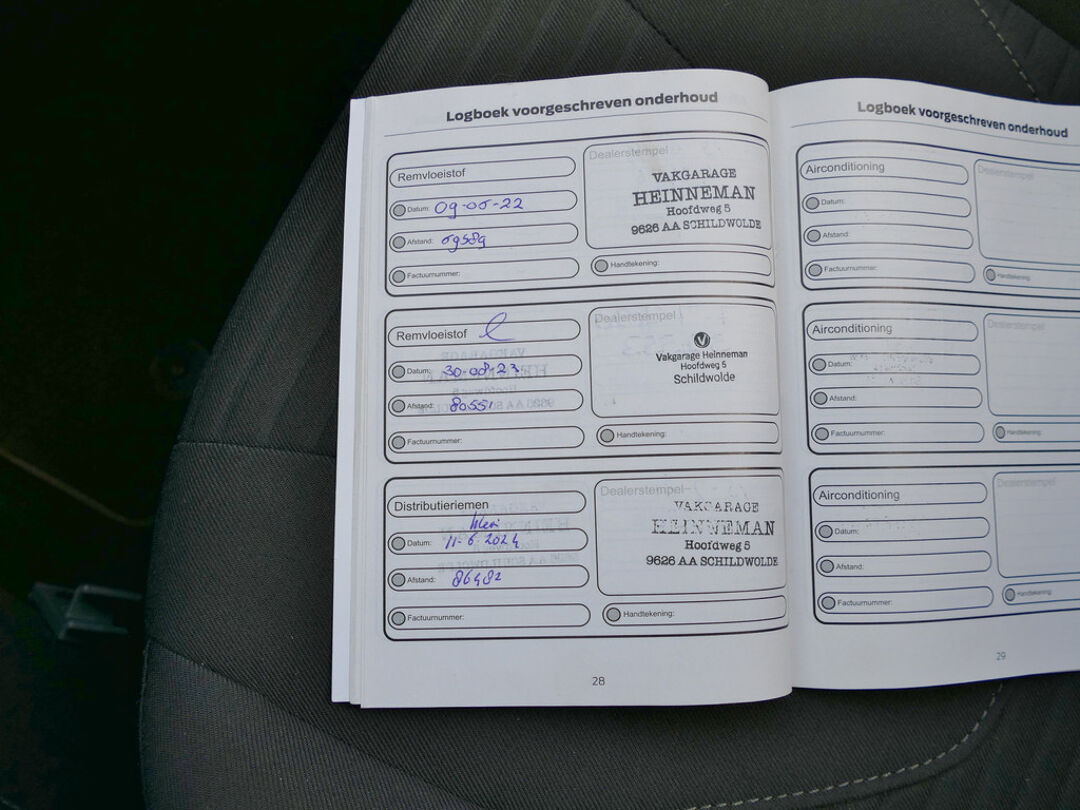 Logboek voorgeschreven onderhoud
Remvloeistof
Datum: 09-05-22
Afstand:
Factuurnummer:
Dealerstempel
VAKGARAGE
HEINNEMAN
Hoofdweg 5
9626 AA SCHILDWOLDE
Handtekening:
Remvloeistof
Datum: 30-08-23
Afstand: 80551
Factuurnummer:
Dealerstempel
Vakgarage Heinneman
Hoofdweg 5
Schildwolde
Handtekening:
Distributieriemen
Datum: 11-6-2024
Afstand: 86482
Factuurnummer:
Dealerstempel
VAKGARAGE
HEINNEMAN
Hoofdweg 5
9626 AA SCHILDWOLDE
Handtekening:
28
Logboek voorgeschreven onderhoud
Airconditioning
Datum:
Afstand:
Factuurnummer:
Dealerstempel
Handtekening:
Airconditioning
Datum:
Afstand:
Factuurnummer:
Dealerstempel
Handtekening:
Airconditioning
Datum:
Afstand:
Factuurnummer:
Dealerstempel
Handtekening:
29